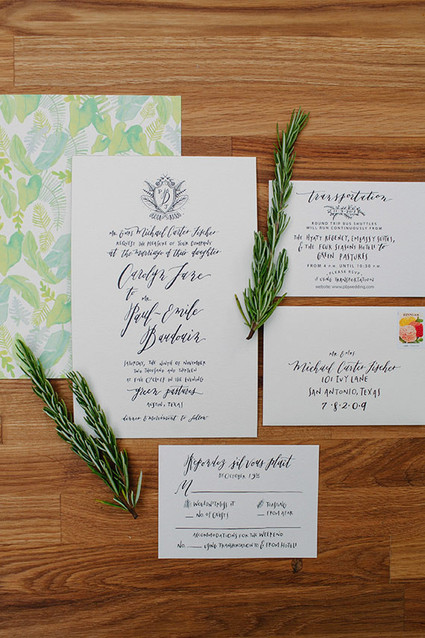 Mr. & Mrs. Michael Carter Fischer
REQUEST THE PLEASURE OF YOUR COMPANY
at the marriage of their daughter
Carolyn Jane
to Mr.
Paul-Emile
Baudouin
SATURDAY, THE
OF NOVEMBER
TWO THOUSAND AND
AT FIVE O'CLOCK IN THE EVENING
Green Pastures
AUSTIN, TEXAS
dinner & merriment to follow
transportation
ROUND TRIP BUS SHUTTLES
WILL RUN CONTINUOUSLY FROM
THE HYATT REGENCY, EMBASSY SUITES,
& THE FOUR SEASONS HOTELS TO
GREEN PASTURES
FROM 4 P.M. UNTIL 10:30 P.M.
PLEASE RSVP
IF USING TRANSPORTATION
Michael Carter Fischer
101 IVY LANE
SAN ANTONIO, TEXAS
7·8·2·0·9
Respondez s'il vous plait
OCTOBER
M
NO. OF GUESTS
FROM AFAR
ACCOMMODATIONS FOR THE WEEKEND
NO. USING TRANSPORTATION TO & FROM HOTELS